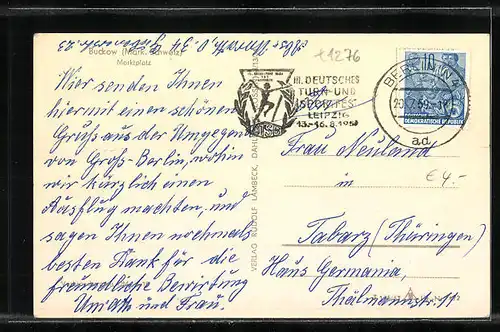 Abs. Umrath, 0.34
Buckow (Märk. Schweiz)
Marktplatz
Wir senden Ihnen
hiermit einen schönen
Gruß aus der Umgegend
von Groß-Berlin, wohin
wir kürzlich einen
Ausflug machten, und
sagen Ihnen nochmals
besten Dank für die
freundliche Bewirtung
Umrath und Frau.
VERLAG RUDOLF LAMBECK, DAHL
+1276
III. DEUTSCHES
TURN-UND
SPORTFEST
LEIPZIG
13.-16.8.1959
BERLIN
20.7.59
ad
10
DEUTSCHE DEMOKRATISCHE REPUBLIK
Frau Neuland
€ 4.-
in
Tabarz (Thüringen)
Haus Germania,
Thälmannstr. 11